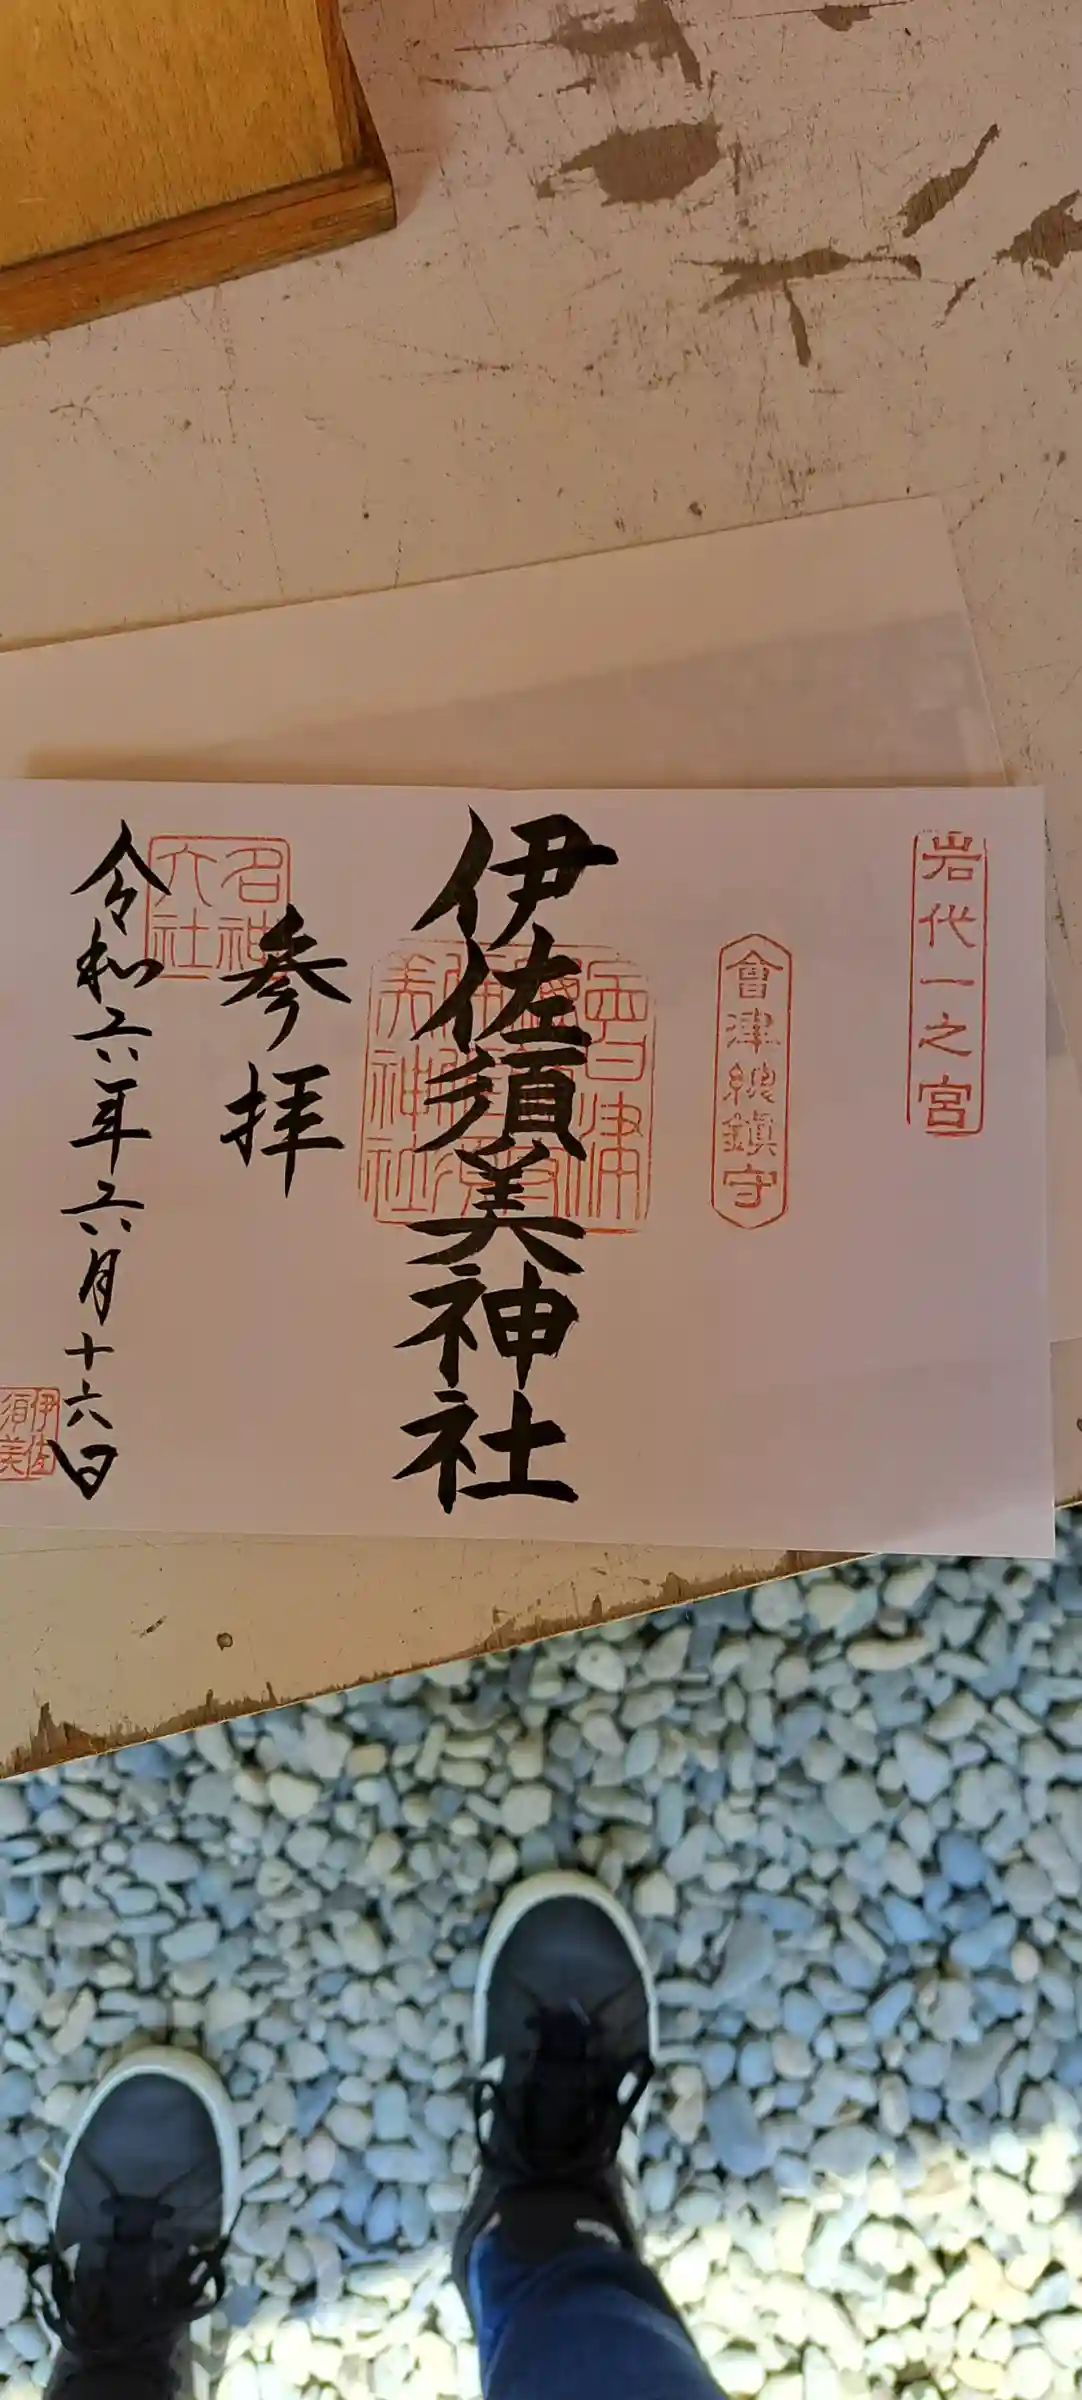 岩代一之宮
會津總鎮守
伊佐須美神社
參拝
名神大社
令和六年六月十六日
伊佐須美